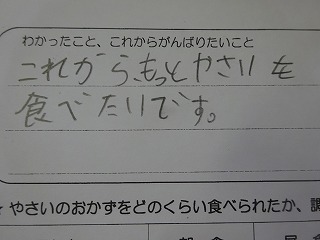 わかったこと、これからがんばりたいこと
これからもっとやさいを
食べたいです。
やさいのおかずをどのくらい食べられたか、調